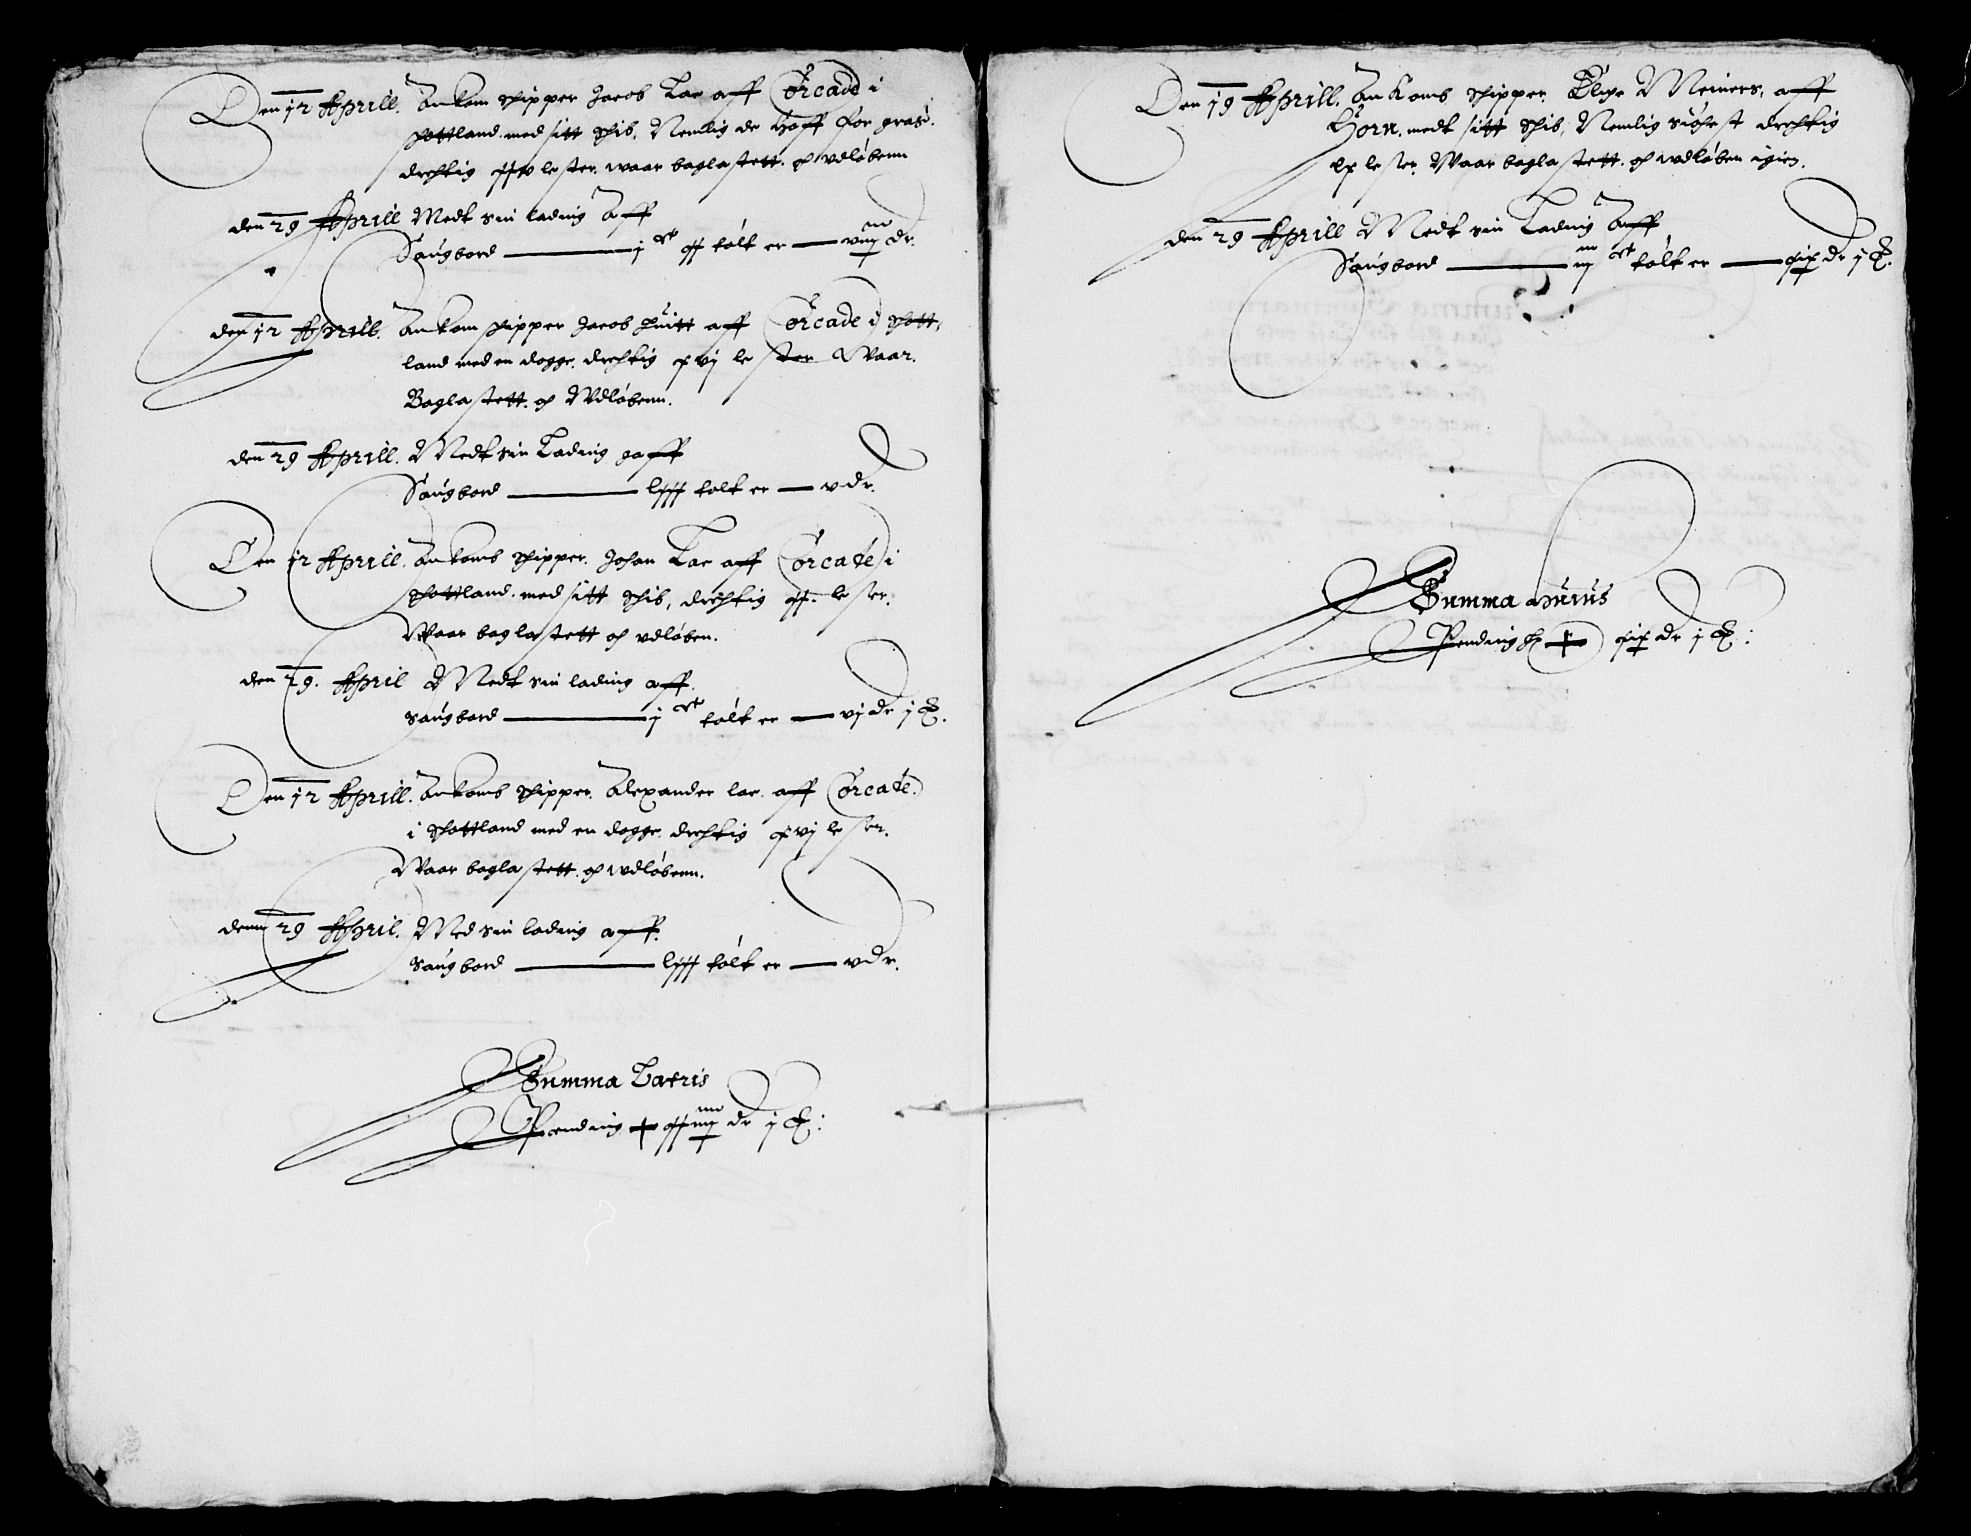 Den 12 Aprill. Ankom skipper Jacob Lae aff Orcade i
skottland. med sitt skib, Nemlig de Hoff for
drechtig xxv lester. waar baglastett. och udløbenn
den 29 Aprill Medt sin lading Aff
Saugbord — j xx tolt er — viij dr.
den 12 Aprill. Ankom skipper Jacob aff Orcade i skott,
land med en dogge. drechtig xvj lester Waar.
Baglastett. och Udløbenn.
den 29 Aprill. Medt sin Lading aff
Saugbord — lxxx tolt er — v dr.
Den 12 Aprill. Ankomb skipper. Johan Lae aff Orcade i
skottland. med sitt skib, drechtig xx. lester.
Waar baglastett och udløben.
den 29. April Medt sin lading aff.
saugbord — j tolt er — vj dr j
Den 12 Aprill. Ankomb skipper. Alexander lae. aff Orcade.
i skottland med en dogge. drechtig xvj lester.
Waar baglastett. och udløbenn.
denn 29 April. Med sin lading aff.
saugbord — lxxx tolt er — v dr.
Summa Lateris
Pending xxiiij dr j
Den 19 Aprill. Ankomb skipper. Meiners, aff
Horn. medt sitt skib, Nemlig drechtig
lx lester. Waar baglastett. och udløben igien.
den 29 Aprill Medt sin Lading Aff
Saugbord — iij tolt er — xix dr j
Summa Huius
Pending xix dr j